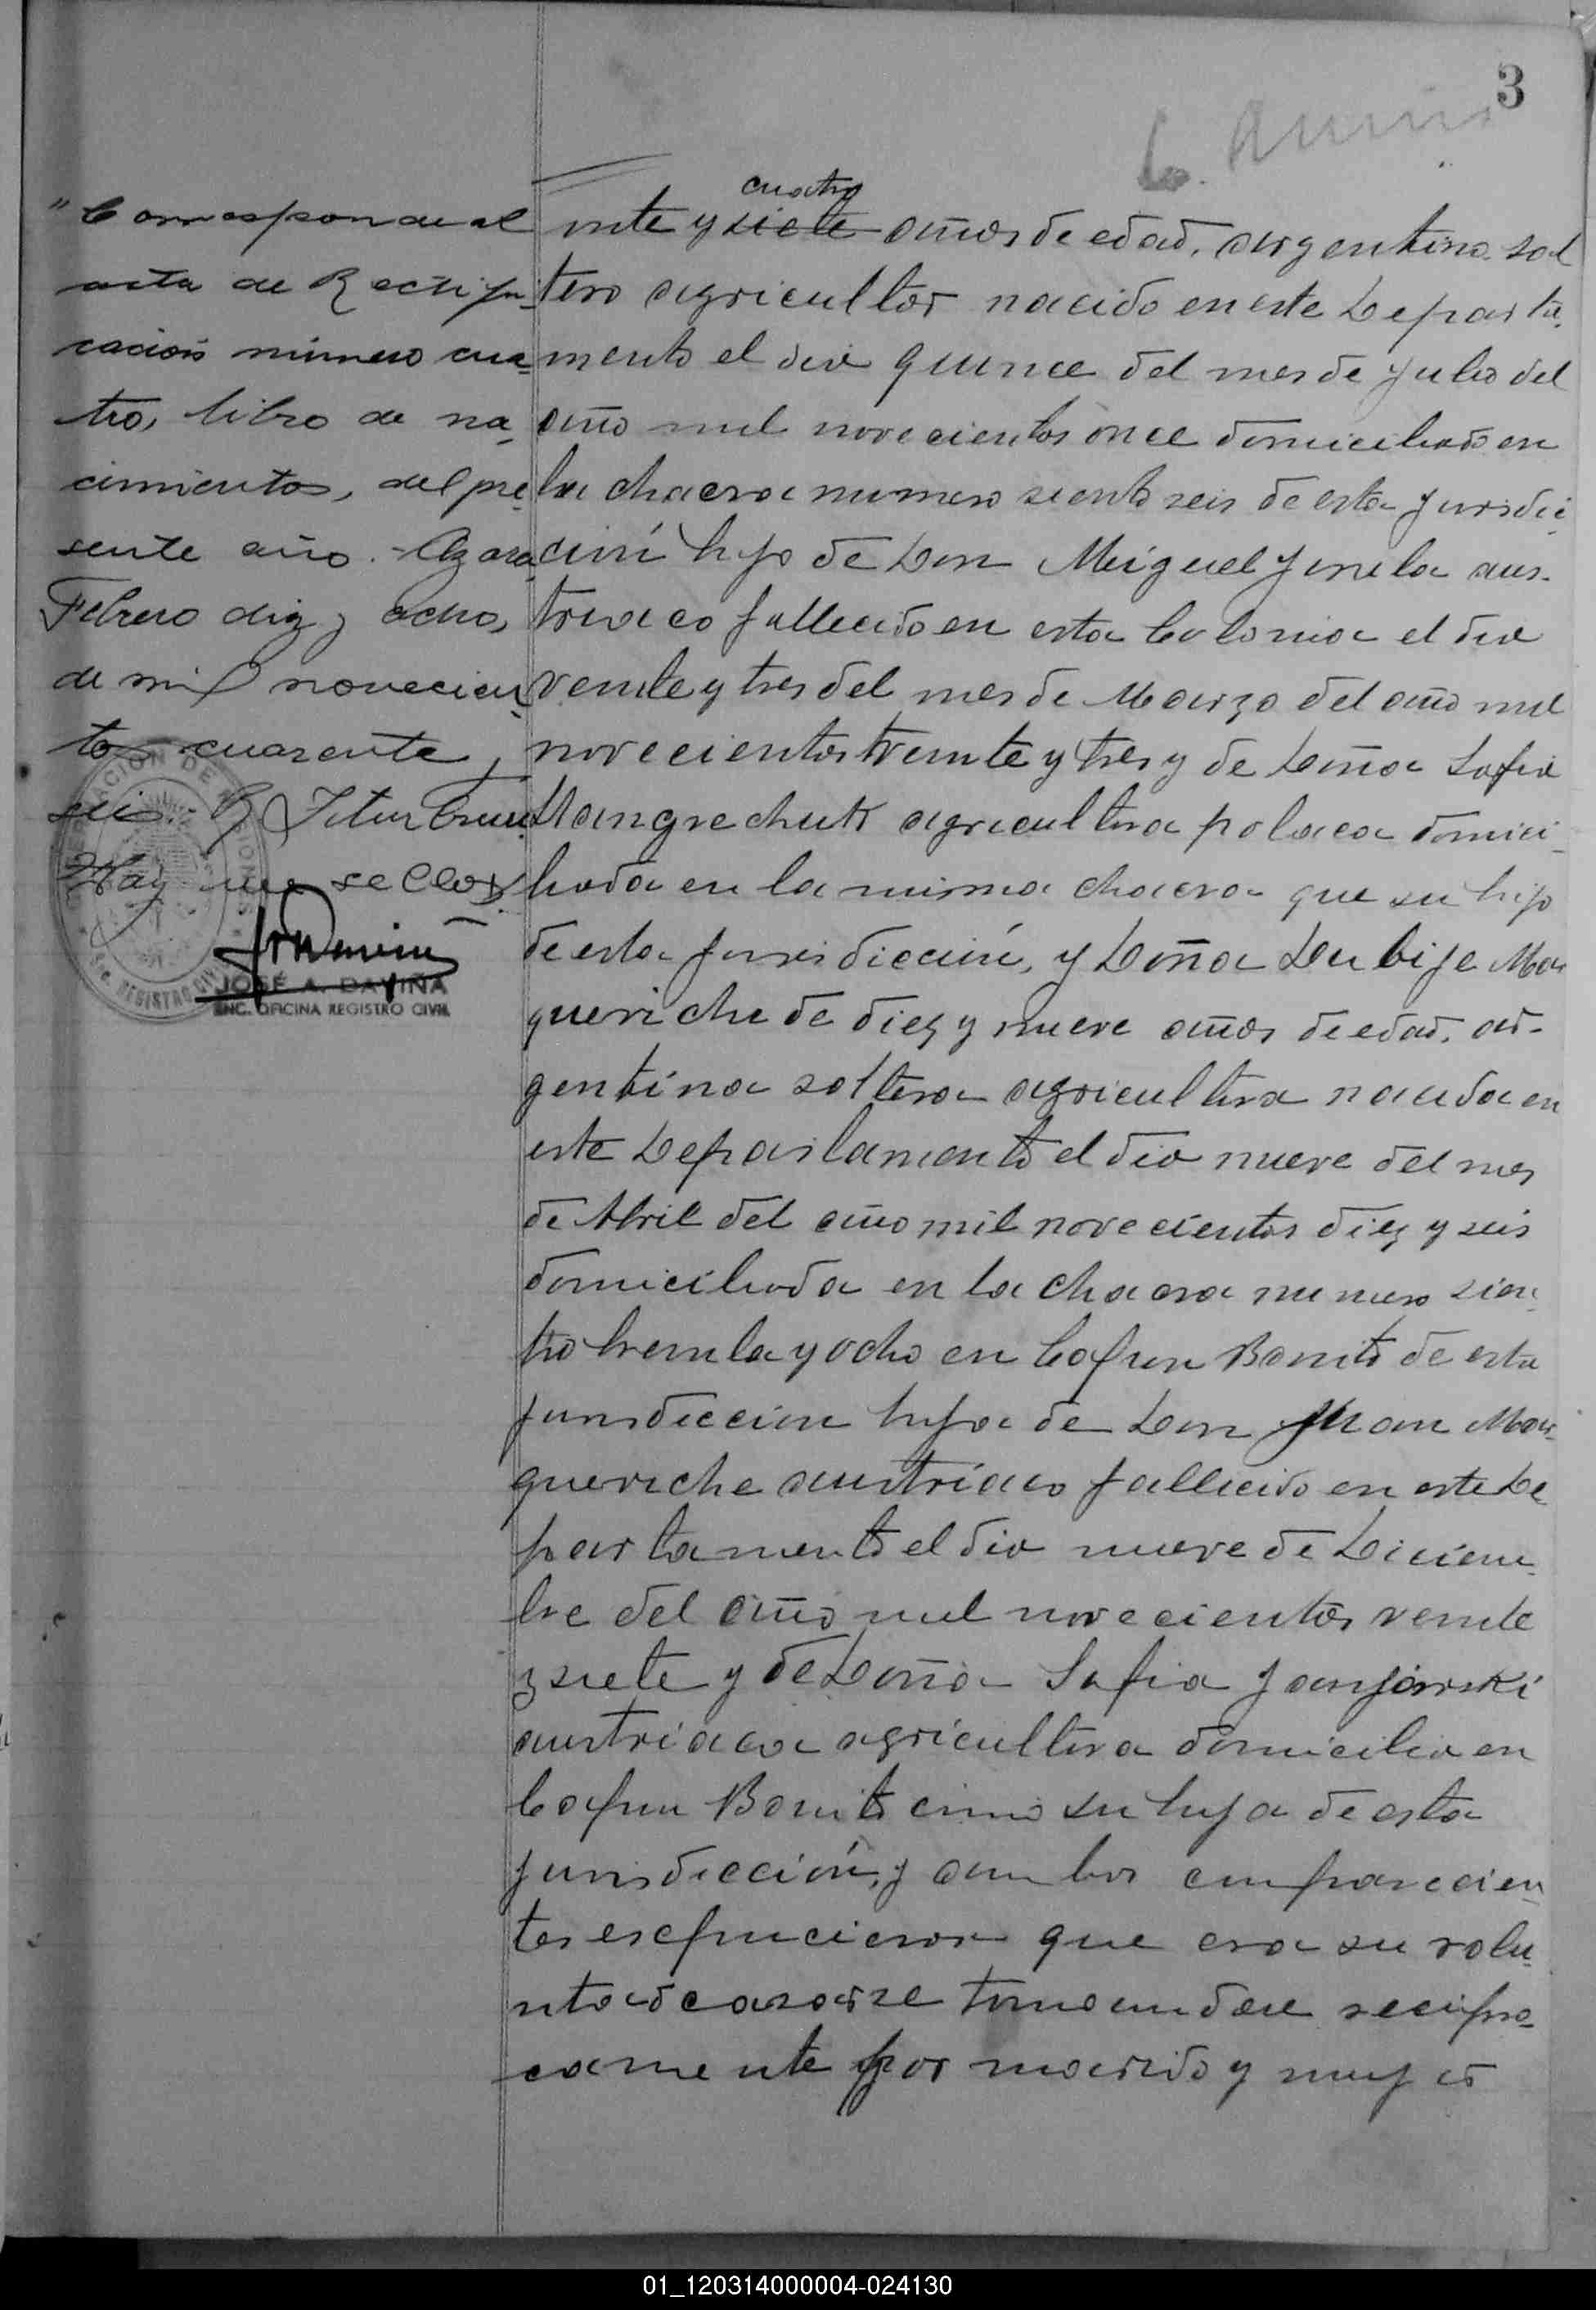 3
"Corresponde al
acta de Rectifi-
cación número cua-
tro, libro de na-
cimientos, del pre-
sente año. - Azara
Febrero diez y ocho,
de mil novecien-
tos cuarenta y
seis.
Hay un sello"
JOSÉ A. DAVIÑA
ENC. OFICINA REGISTRO CIVIL
cuatro
inte y siete años de edad, argentino sol
tero agricultor nacido en este Departa-
mento el dia quince del mes de Julio del
año mil novecientos once domiciliado en
la chacra numero siento seis de esta Jurisdic
ción hijo de Don Miguel Jinela aus-
triaco fallecido en esta Colonia el dia
veinte y tres del mes de Marzo del año mil
novecientos treinte y tres y de Doña Sofia
agricultora polaca domici-
liada en la misma chacra que su hijo
de esta Jurisdicción, y Doña Lubije Mar
queriche de diez y nueve años de edad, ar-
gentina soltera agricultora nacida en
este Departamento el dia nueve del mes
de Abril del año mil novecientos diez y seis
domiciliada en la chacra numero sien-
to treinta y ocho en Capon Bonito de esta
jurisdiccion hija de Don Juan Mar-
queriche austríaco fallecido en este De
partamento el dia nueve de Diciem-
bre del año mil novecientos veinte
y siete y de Doña Sofia Janjorski
austriaca agricultora domicilia en
Capon Bonito como su hija de esta
jurisdicción, y ambos comparecien-
tes espucieron que era su volu-
ntad casarse tomandose recipro-
camente por marido y mujer
01_120314000004-024130